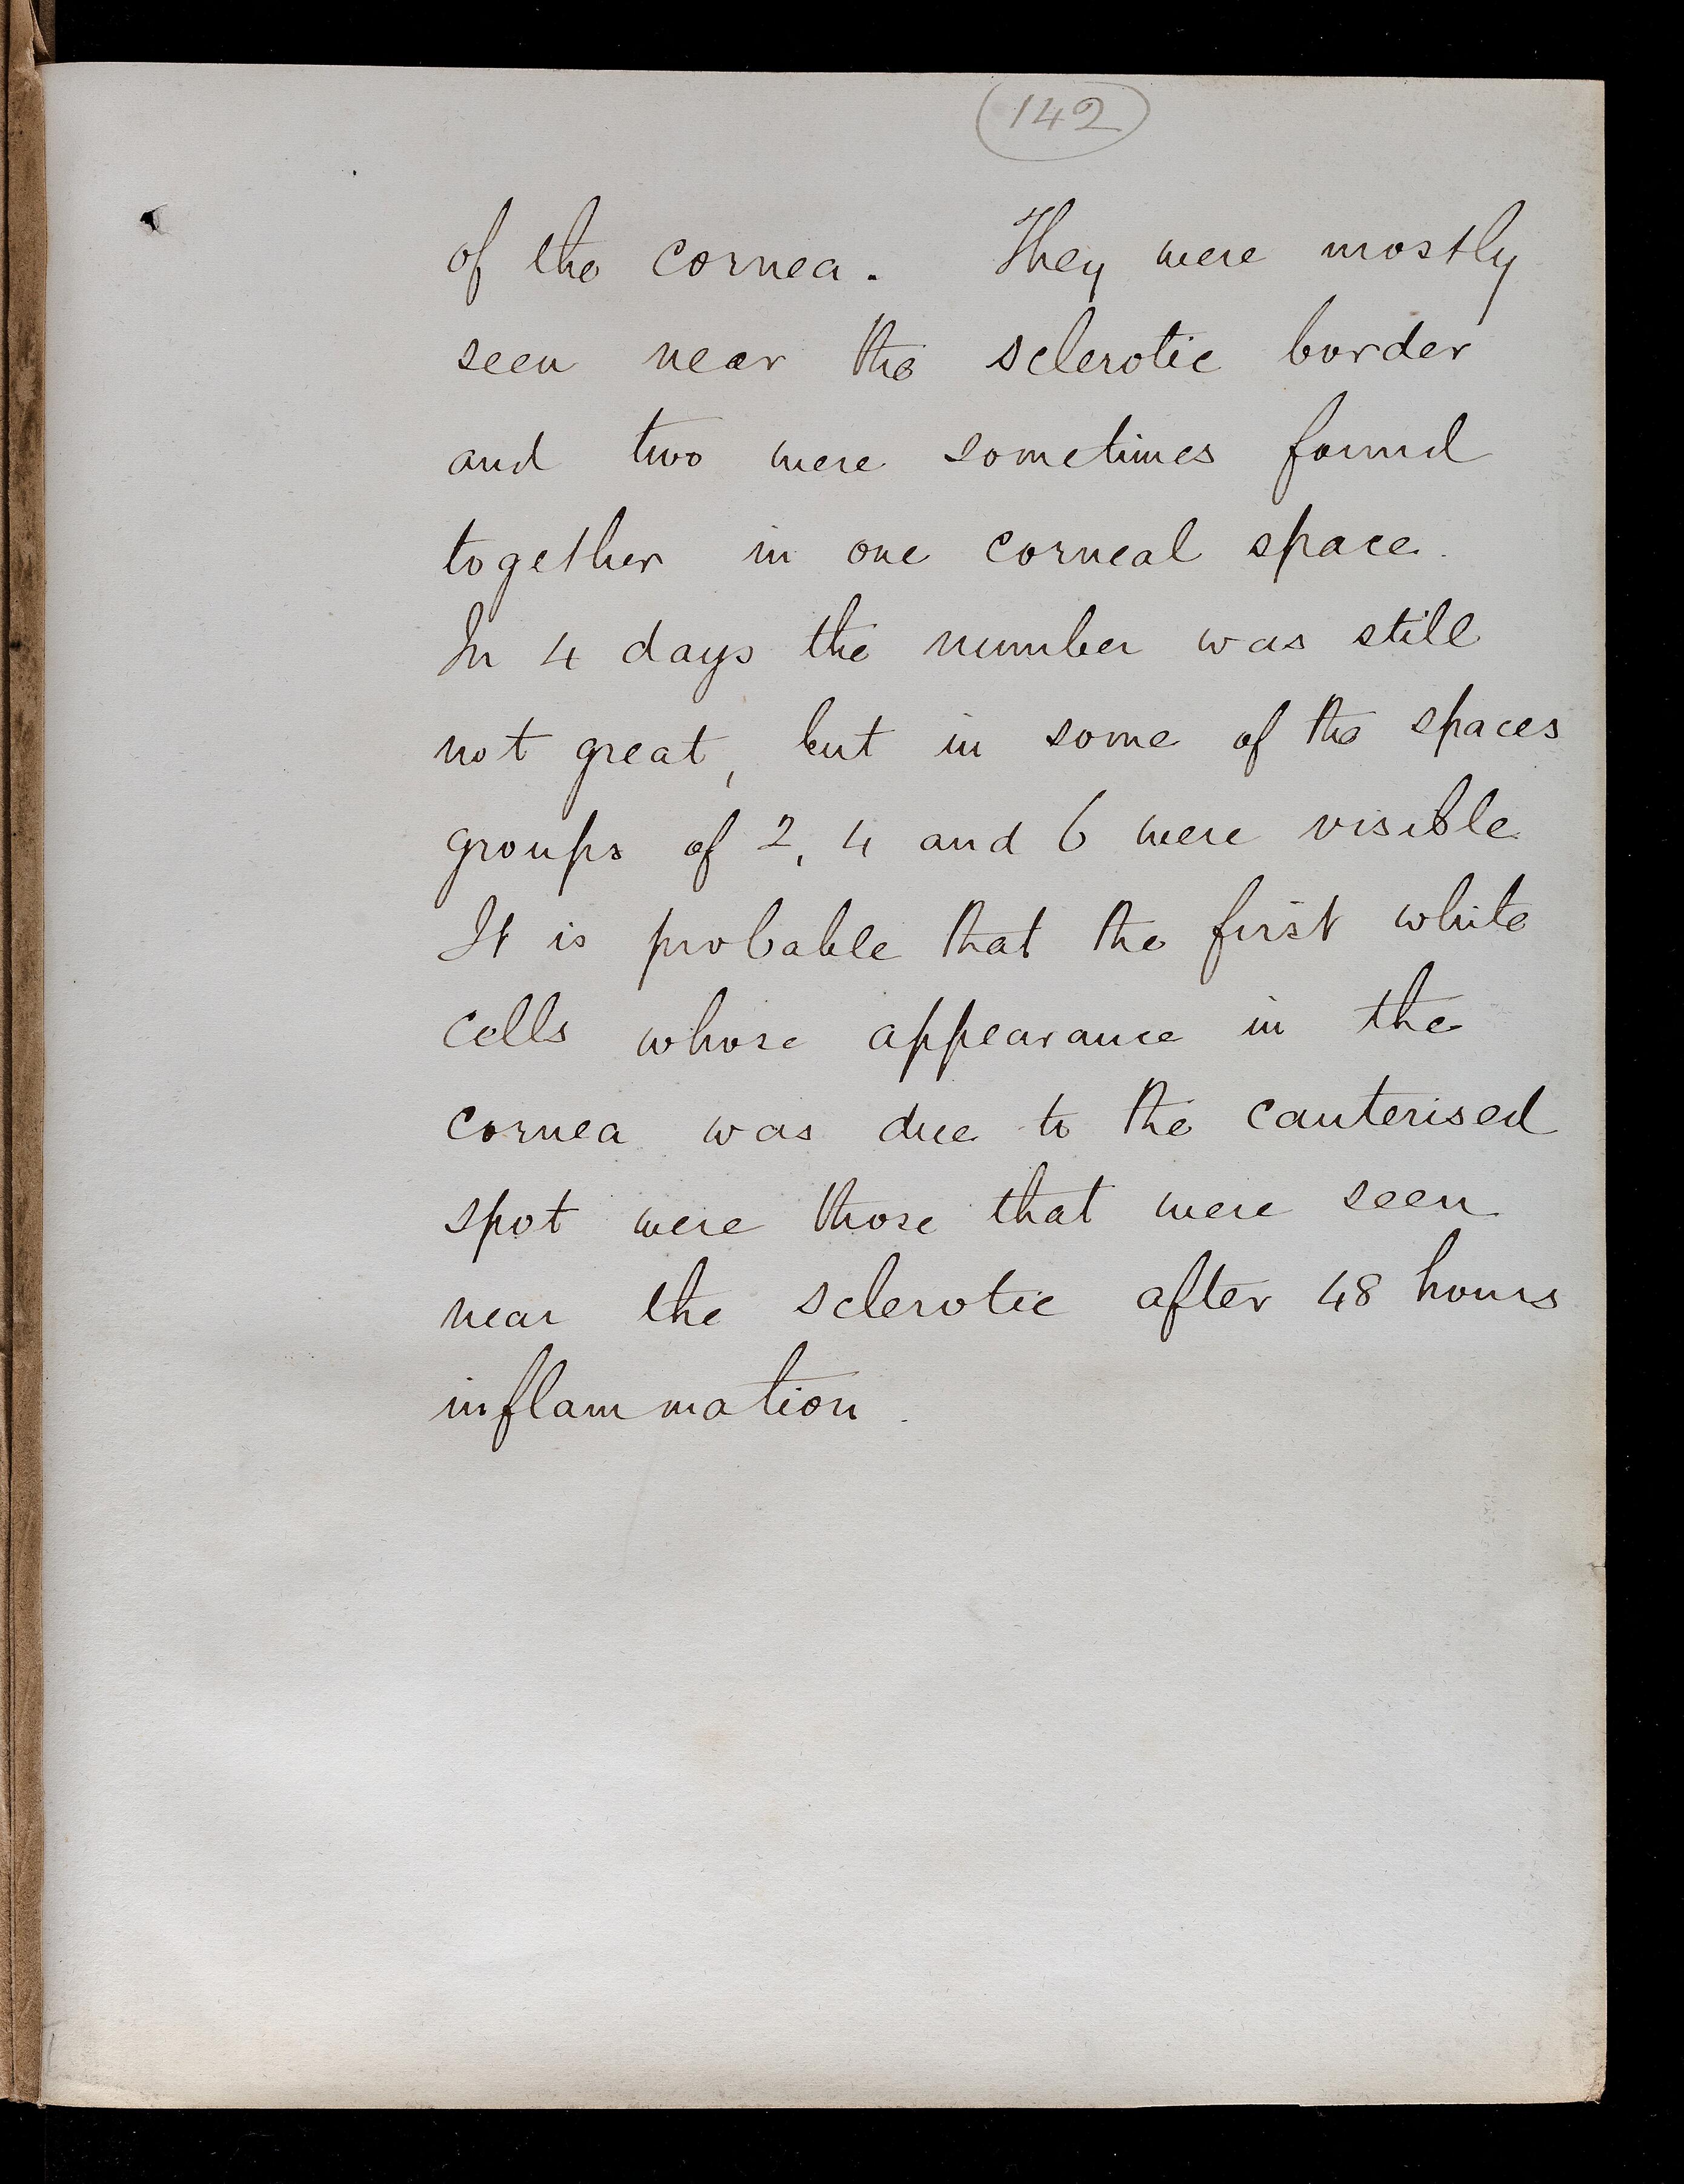 142
of the cornea. They were mostly
seen near the sclerotic border
and two were sometimes found
together in one corneal space.
In 4 days the number was still
not great, but in some of the spaces
groups of 2, 4 and 6 were visible
It is probable that the first white
cells whose appearance in the
cornea was due to the cauterised
spot were those that were seen
near the sclerotic after 48 hours
inflammation.